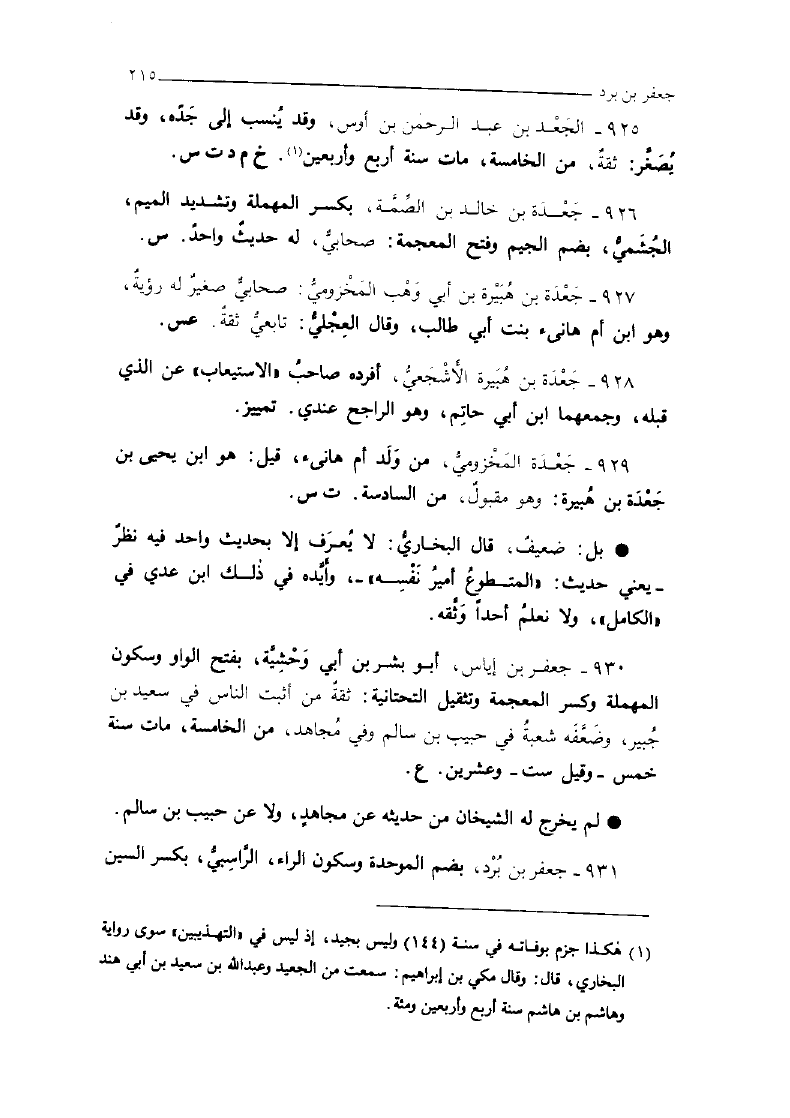 جعفر بن برد ــــــ ٢١٥
٩٢٥ ـ الجَعْد بن عبد الرحمٰن بن أوس، وقد يُنسب إلى جَدّه، وقد
يُصَغَّر: ثقةٌ، من الخامسة، مات سنة أربع وأربعين(١). خ م د ت س.
٩٢٦ ـ جَعْدَة بن خالد بن الصِّمَّة، بكسر المهملة وتشديد الميم،
الجُشَميُّ، بضم الجيم وفتح المعجمة: صحابيٌّ، له حديثٌ واحدٌ. س.
٩٢٧ ـ جَعْدَة بن هُبَيْرة بن أبي وَهْب المَخْزوميُّ: صحابيٌّ صغيرٌ له رؤيةٌ،
وهو ابن أم هانىء بنت أبي طالب، وقال العِجْليُّ: تابعيٌّ ثقةٌ. عس.
٩٢٨ ـ جَعْدَة بن هُبَيرة الأَشْجَعيُّ، أفرده صاحبُ «الاستيعاب» عن الذي
قبله، وجمعهما ابن أبي حاتِم، وهو الراجح عندي. تمييز.
٩٢٩ ـ جَعْدَة المَخْزوميُّ، من وَلَد أم هانىء، قيل: هو ابن يحيى بن
جَعْدَة بن هُبيرة: وهو مقبولٌ، من السادسة. ت س.
● بل: ضعيفٌ، قال البخاريُّ: لا يُعرَف إلا بحديث واحد فيه نظرٌ
ـ يعني حديث: «المتطوعُ أميرُ نَفْسِه» ـ، وأيَّده في ذٰلك ابن عدي في
«الكامل»، ولا نعلمُ أحداً وَثَّقه.
٩٣٠ ـ جعفر بن إياس، أبو بشر بن أبي وَحْشِيَّة، بفتح الواو وسكون
المهملة وكسر المعجمة وتثقيل التحتانية: ثقةٌ من أثبت الناس في سعيد بن
جُبير، وضَعَّفَه شعبةُ في حبيب بن سالم وفي مُجاهد، من الخامسة، مات سنة
خمس ـ وقيل ست ـ وعشرين. ع.
● لم يخرج له الشيخان من حديثه عن مجاهدٍ، ولا عن حبيب بن سالم.
٩٣١ ـ جعفر بن بُرْد، بضم الموحدة وسكون الراء، الرَّاسِبيُّ، بكسر السين
(١) هٰكذا جزم بوفاته في سنة (١٤٤) وليس بجيد، إذ ليس في «التهذيبين» سوى رواية
البخاري، قال: وقال مكي بن إبراهيم: سمعت من الجعيد وعبدالله بن سعيد بن أبي هند
وهاشم بن هاشم سنة أربع وأربعين ومئة.